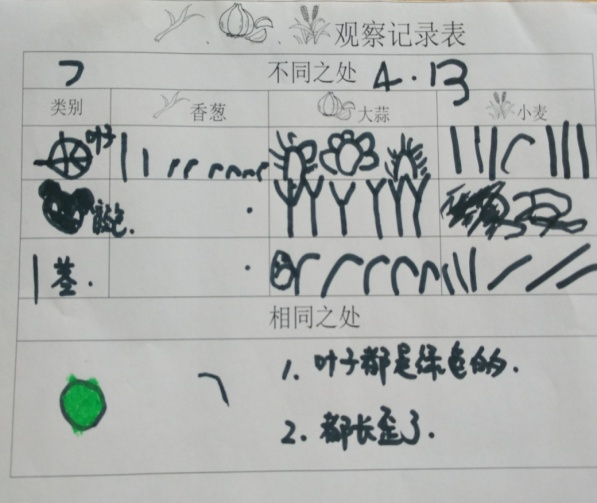 观察记录表
不同之处 4.13
类别 香葱 大蒜 小麦
叶子
颜色.
茎.
相同之处
1. 叶子都是绿色的.
2. 都长歪了.